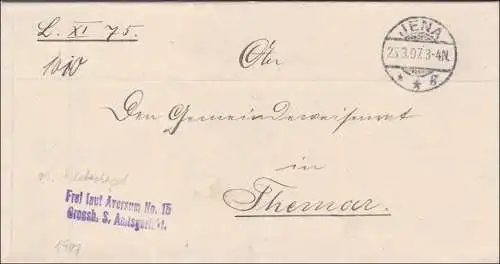 L. XI 75.
JENA
23.3.07. 3-4N.
* * g
An
Den Gemeindewaisenrat
in
Frei laut Aversum No. 15
Grossh. S. Amtsgericht.
Themar.
1907